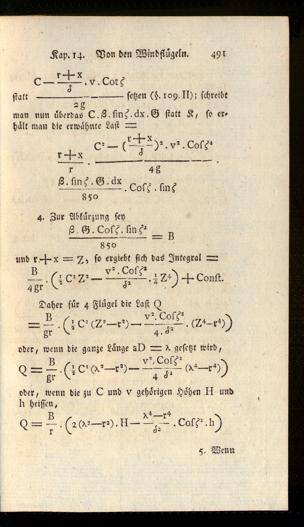 Kap. 14. Von den Windflügeln. 491
C — (r+x)/δ . v. Cot ζ
statt ———— setzen (§. 109. II); schreibt
2g
man nun überdas C. β. sin ζ. dx. G statt K, so er-
hält man die erwähnte Last =
(r+x)/r . (C² — ((r+x)/δ)². v². Cos ζ²)/4g .
(β. sin ζ. G. dx)/850 . Cos ζ. sin ζ
4. Zur Abkürzung sey
(β. G. Cos ζ. sin ζ²)/850 = B
und r+x = Z, so ergiebt sich das Integral =
B/4gr . (½ C² Z² — (v². Cos ζ²)/δ² . ¼ Z⁴) + Const.
Daher für 4 Flügel die Last Q
= B/gr . (½ C² (Z²—r²) — (v². Cos ζ²)/(4. δ²) . (Z⁴—r⁴))
oder, wenn die ganze Länge aD = λ gesetzt wird,
Q = B/gr . (½ C² (λ²—r²) — (v². Cos ζ²)/(4 δ²) (λ⁴—r⁴))
oder, wenn die zu C und v gehörigen Höhen H und
h heissen,
Q = B/r . (2 (λ²—r²). H — (λ⁴—r⁴)/δ² . Cos ζ². h)
5. Wenn